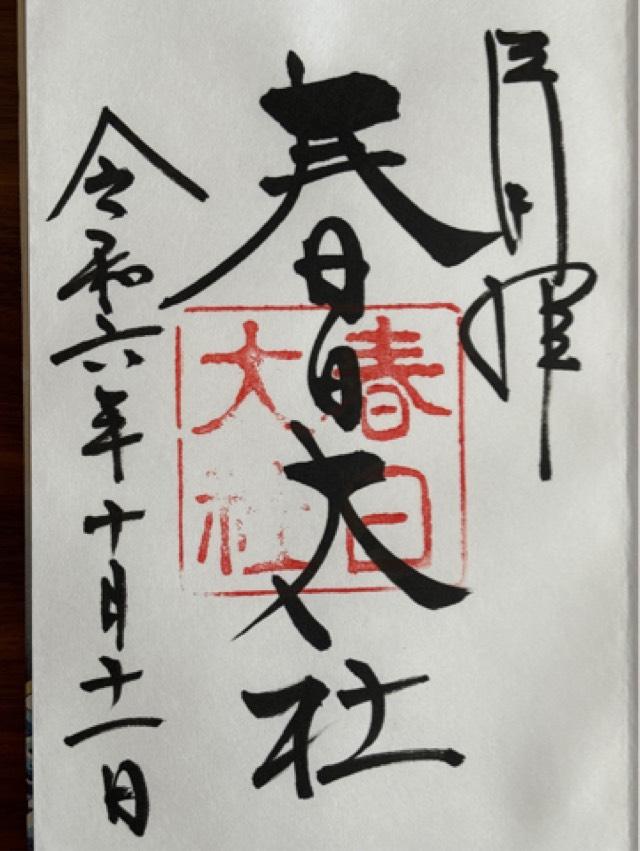 春日大社
令和六年十月十一日
春日
大社